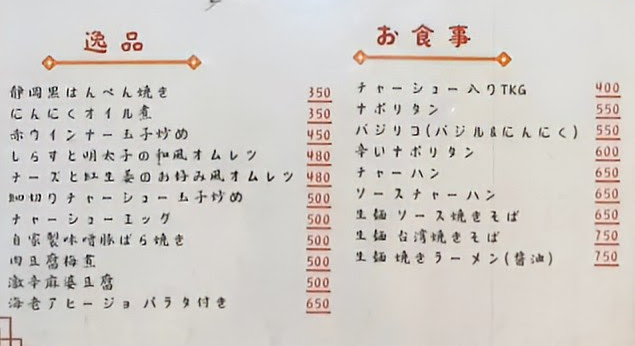 逸品
静岡黒はんぺん焼き 350
にんにくオイル煮 350
赤ウインナー玉子炒め 450
しらすと明太子の和風オムレツ 480
チーズと紅生姜のお好み風オムレツ 480
細切りチャーシュー玉子炒め 500
チャーシューエッグ 500
自家製味噌豚ばら焼き 500
肉豆腐梅煮 500
激辛麻婆豆腐 500
海老アヒージョ バラタ付き 650
お食事
チャーシュー入りTKG 400
ナポリタン 550
バジリコ(バジル&にんにく) 550
辛いナポリタン 600
チャーハン 650
ソースチャーハン 650
生麺 ソース焼きそば 650
生麺 台湾焼きそば 750
生麺 焼きラーメン(醤油) 750